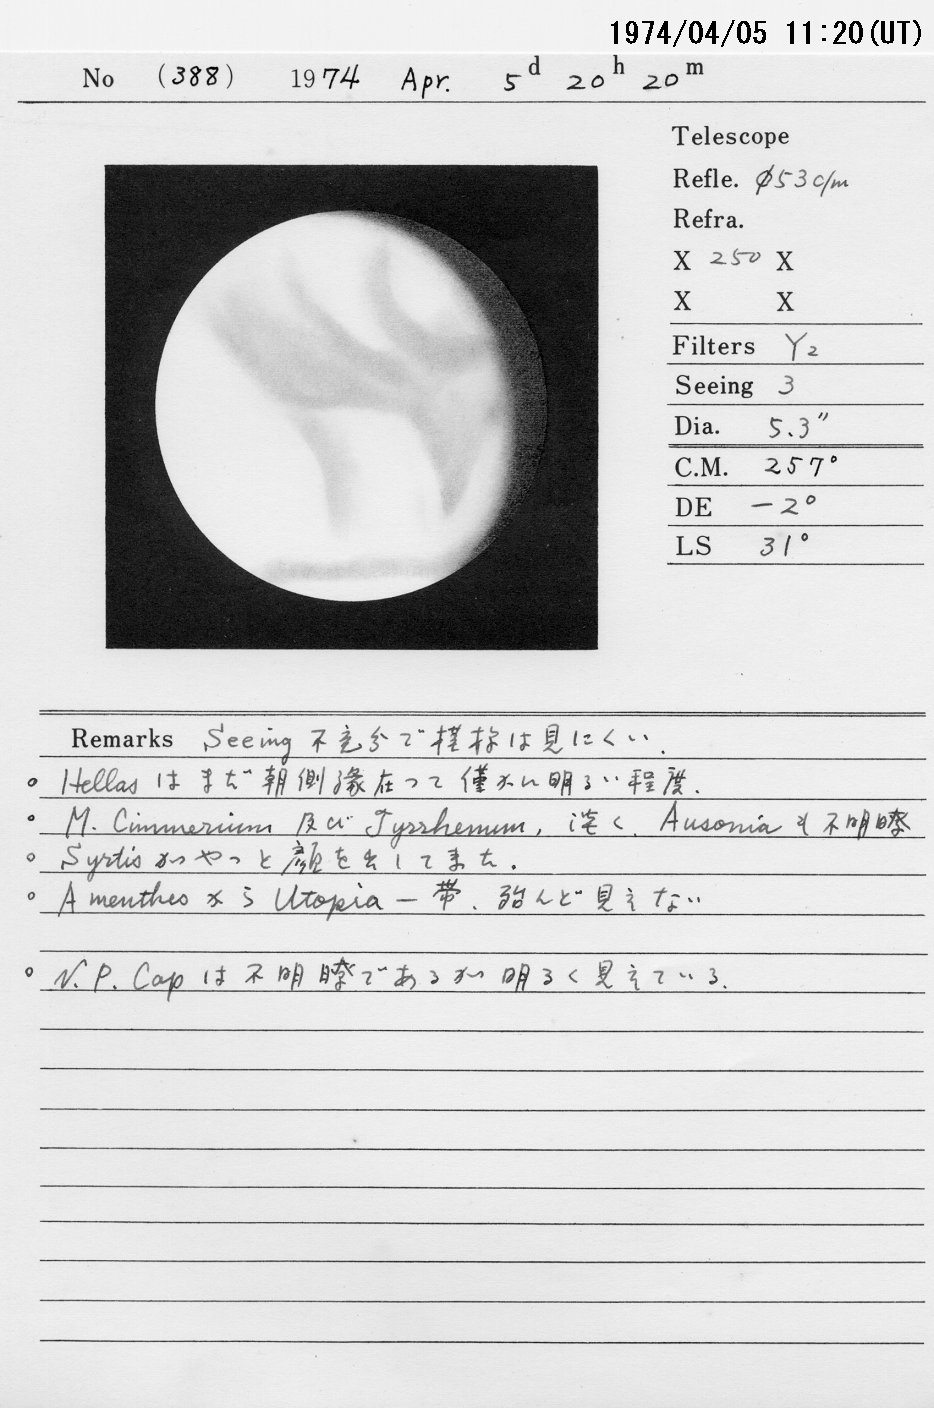 1974/04/05 11:20(UT)
No (388) 1974 Apr. 5d 20h 20m
Telescope
Refle. φ53c/m
Refra.
X 250 X
X X
Filters Y2
Seeing 3
Dia. 5.3″
C.M. 257°
DE −2°
LS 31°
Remarks Seeing 不充分で模様は見にくい.
○ Hellas はまだ朝側縁在って僅かに明るい程度.
○ M. Cimmerium 及び Tyrrhenum, 淡く, Ausonia も不明瞭
○ Syrtis がやっと顔を出してきた.
○ Amenthes から Utopia 一帯, 殆んど見えない
○ N. P. Cap は不明瞭であるが明るく見えている.